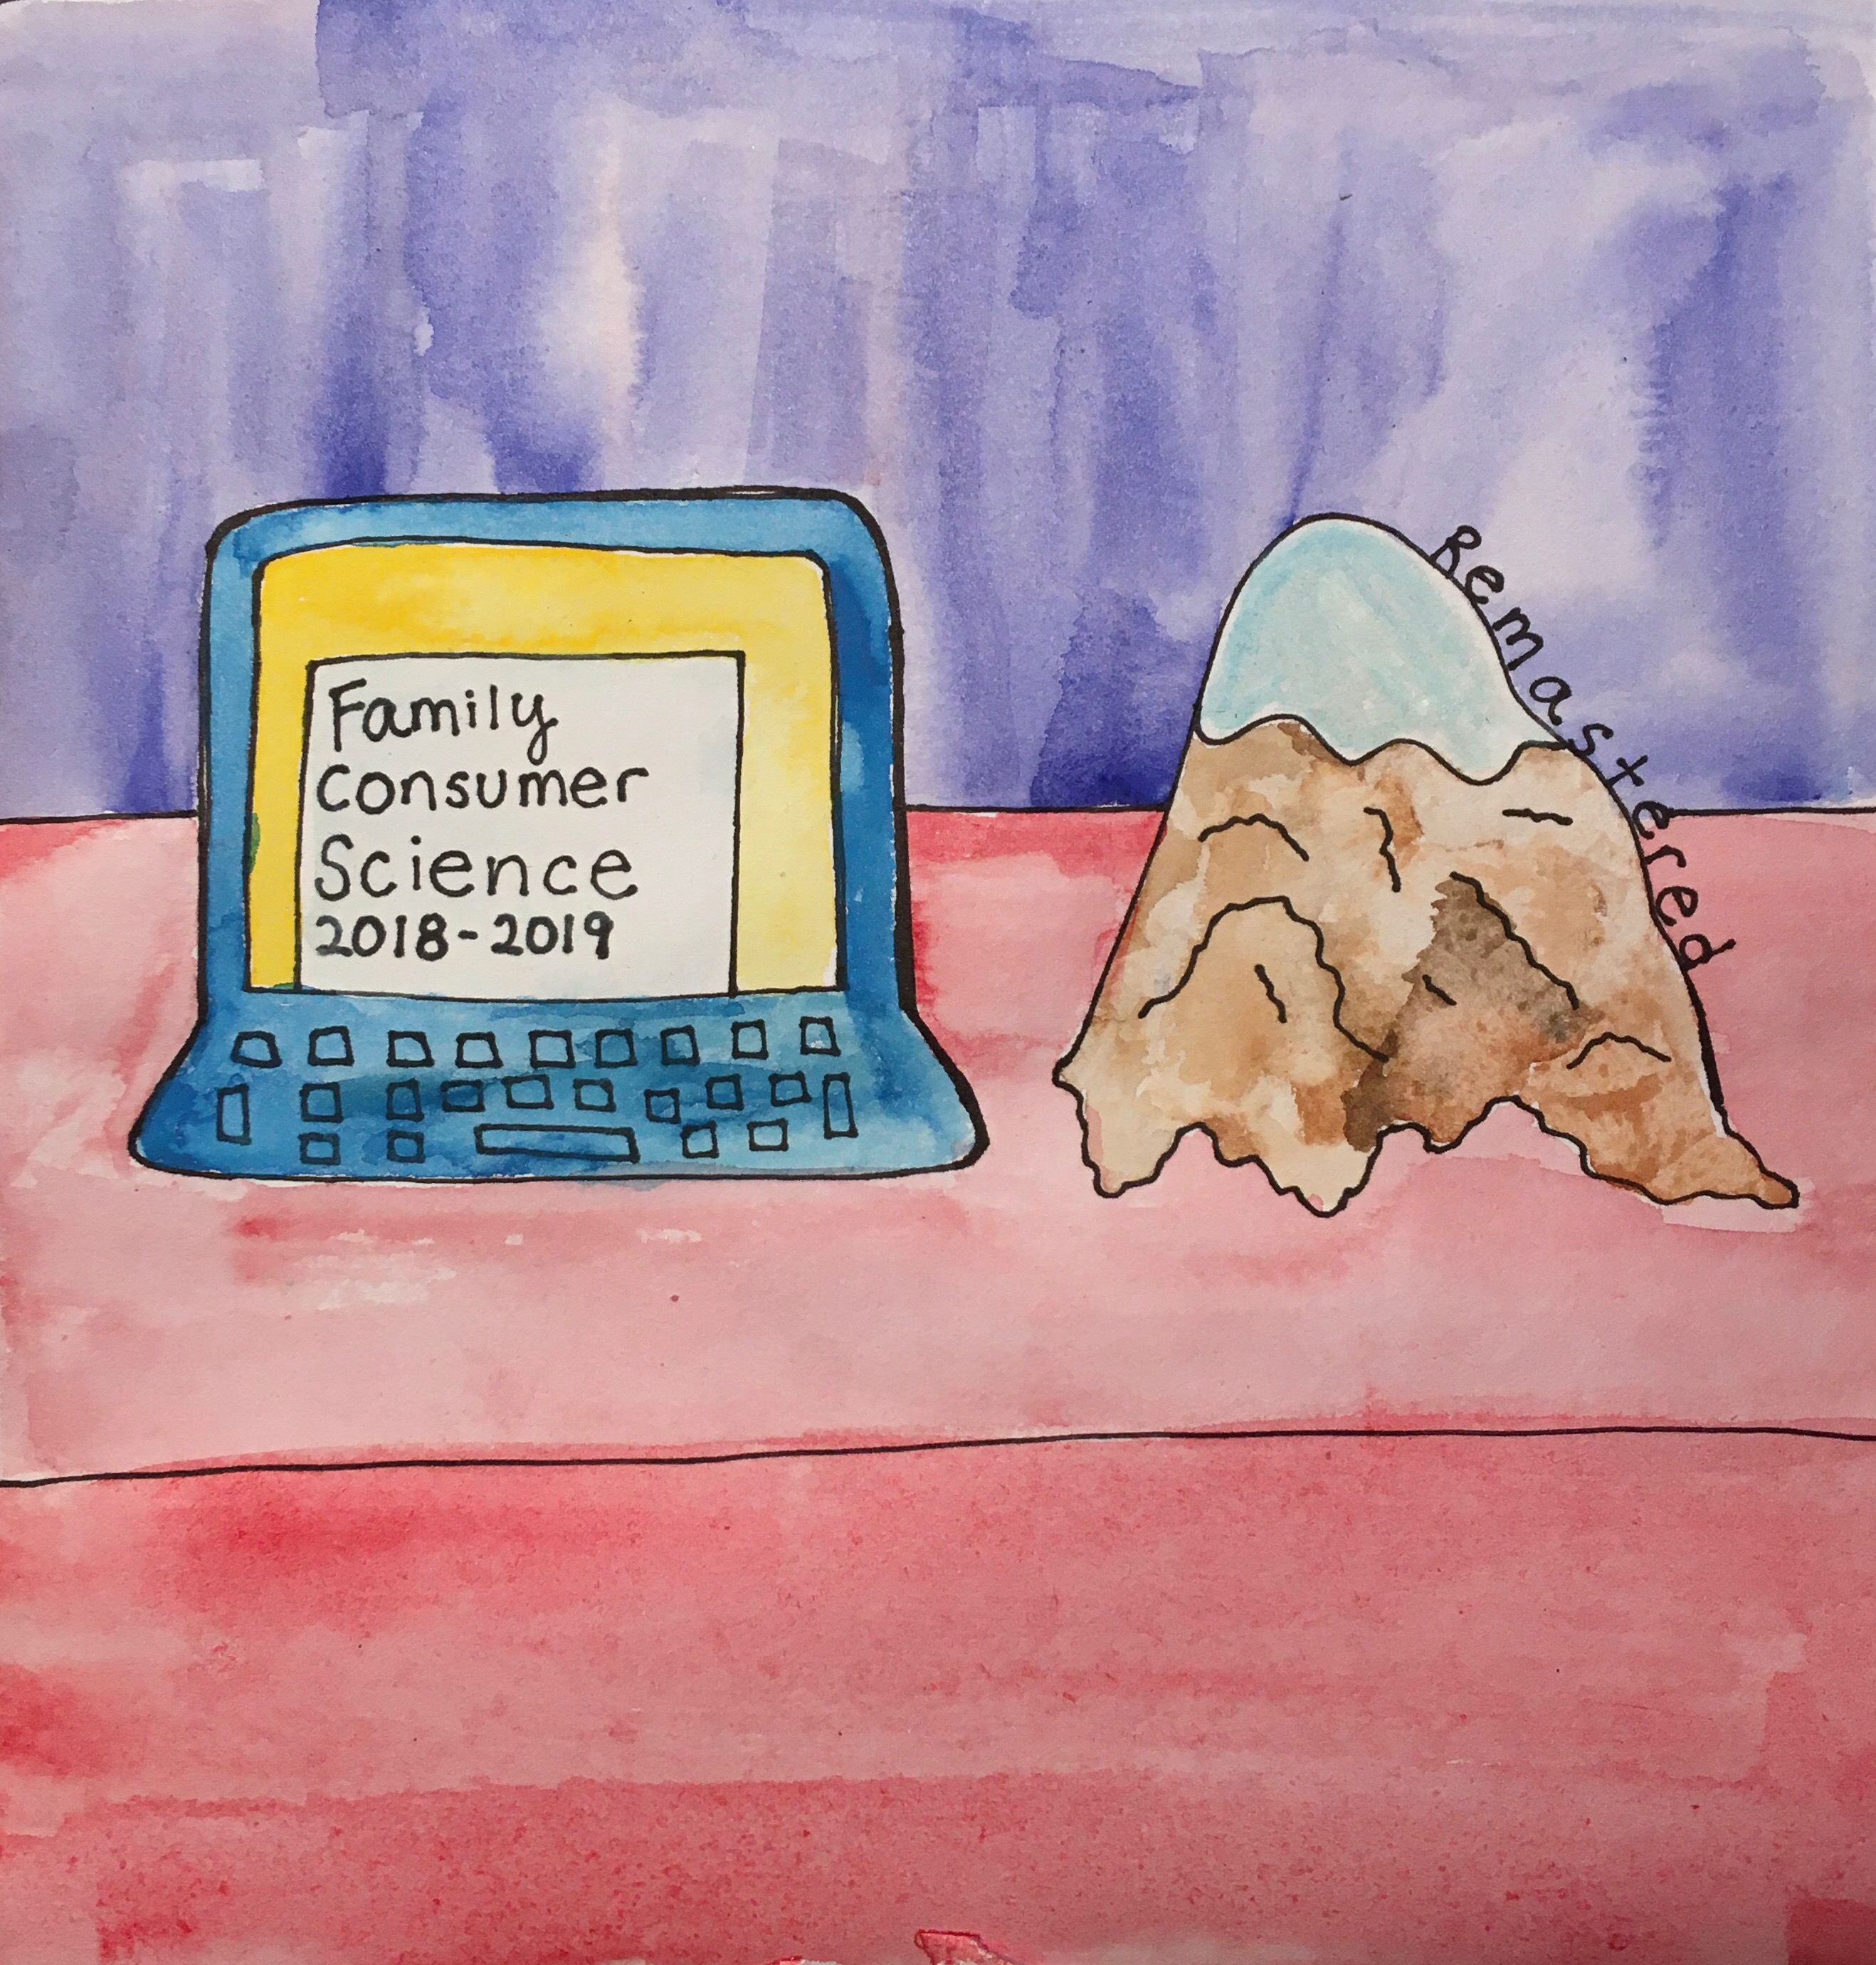 Family
Consumer
Science
2018-2019
Remastered